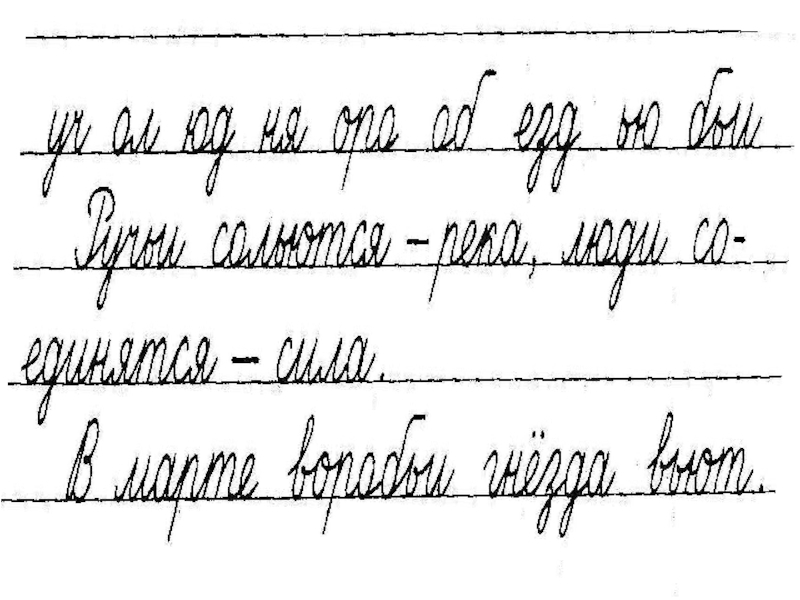 уч ол юд ня оро об езд ью бьи
Ручьи сольются – река, люди со-
единятся – сила.
В марте воробьи гнёзда вьют.